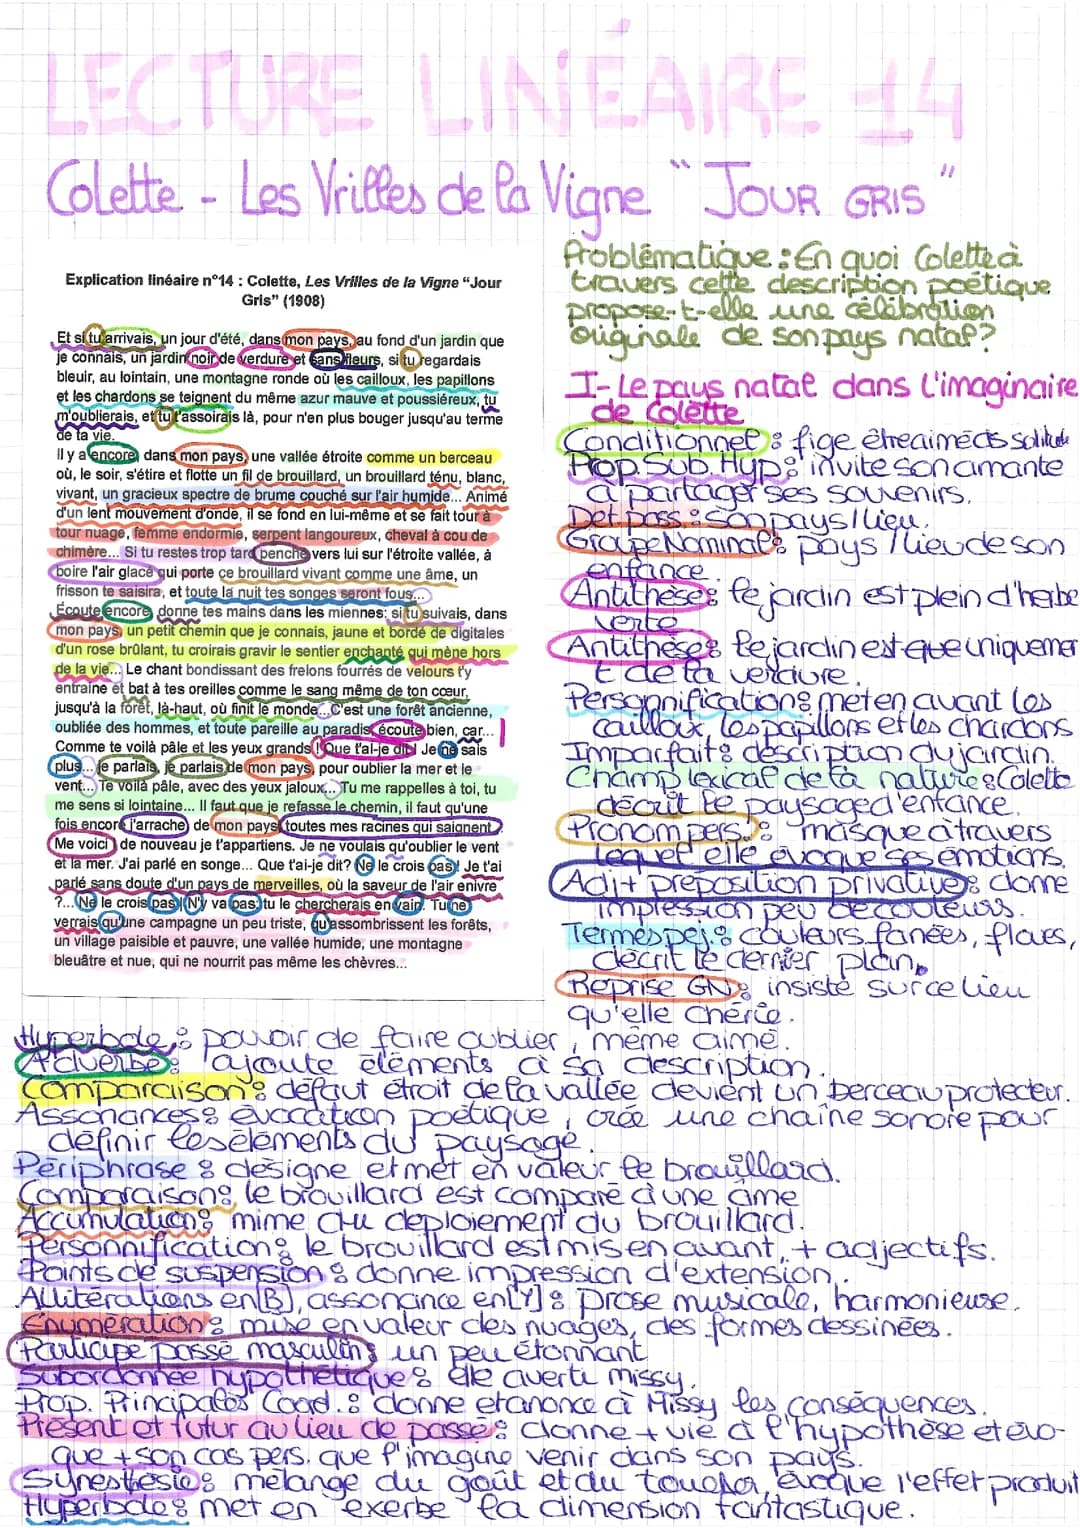 LECTURE LINÉAIRE 14
Colette - Les Vrilles de la Vigne "JOUR GRIS"
Explication linéaire n°14 : Colette, Les Vrilles de la Vigne "Jour
Gris" (1908)
Et si tu arrivais, un jour d'été, dans mon pays, au fond d'un jardin que
je connais, un jardin noir de verdure et sans fleurs, si tu regardais
bleuir, au lointain, une montagne ronde où les cailloux, les papillons
et les chardons se teignent du même azur mauve et poussiéreux, tu
m'oublierais, et tu t'assoirais là, pour n'en plus bouger jusqu'au terme
de ta vie.
Il y a encore, dans mon pays, une vallée étroite comme un berceau
où, le soir, s'étire et flotte un fil de brouillard, un brouillard ténu, blanc,
vivant, un gracieux spectre de brume couché sur l'air humide... Animé
d'un lent mouvement d'onde, il se fond en lui-même et se fait tour à
tour nuage, femme endormie, serpent langoureux, cheval à cou de
chimère... Si tu restes trop tard penché vers lui sur l'étroite vallée, à
boire l'air glacé qui porte ce brouillard vivant comme une âme, un
frisson te saisira, et toute la nuit tes songes seront fous...
Écoute encore, donne tes mains dans les miennes: si tu suivais, dans
mon pays, un petit chemin que je connais, jaune et bordé de digitales
d'un rose brûlant, tu croirais gravir le sentier enchanté qui mène hors
de la vie... Le chant bondissant des frelons fourrés de velours t'y
entraîne et bat à tes oreilles comme le sang même de ton cœur,
jusqu'à la forêt, là-haut, où finit le monde...C'est une forêt ancienne,
oubliée des hommes, et toute pareille au paradis, écoute bien, car...
Comme te voilà pâle et les yeux grands ! Que t'ai-je dit! Je ne sais
plus... je parlais, je parlais de mon pays, pour oublier la mer et le
vent... Te voilà pâle, avec des yeux jaloux... Tu me rappelles à toi, tu
me sens si lointaine... Il faut que je refasse le chemin, il faut qu'une
fois encore j'arrache, de mon pays, toutes mes racines qui saignent.
Me voici ! de nouveau je t'appartiens. Je ne voulais qu'oublier le vent
et la mer. J'ai parlé en songe... Que t'ai-je dit? Ne le crois pas! Je t'ai
parlé sans doute d'un pays de merveilles, où la saveur de l'air enivre
?... Ne le crois pas! N'y va pas: tu le chercherais en vain. Tu ne
verrais qu'une campagne un peu triste, qu'assombrissent les forêts,
un village paisible et pauvre, une vallée humide, une montagne
bleuâtre et nue, qui ne nourrit pas même les chèvres...
Problématique : En quoi Colette à
travers cette description poétique
propose-t-elle une célébration
originale de son pays natal?
I- Le pays natal dans l'imaginaire
de Colette
Conditionnel : fige être aimé ds solitude
Prop. Sub. Hyp : invite son amante
à partager ses souvenirs.
Det poss : son pays / lieu.
Groupe Nominal : pays / lieu de son
enfance.
Antithèse : le jardin est plein d'herbe
verte
Antithèse : le jardin est que uniquemen
t de la verdure.
Personnification : met en avant les
cailloux, les papillons et les chardons
Imparfait : description du jardin.
Champ lexical de la nature : Colette
décrit le paysage d'enfance.
Pronom pers. : masque à travers
lequel elle évoque ses émotions.
Adj + préposition privative : donne
impression peu de couleurs.
Termes pej. : couleurs fanées, floues,
décrit le dernier plan.
Reprise GN : insiste sur ce lieu
qu'elle chérie.
Hyperbole : pouvoir de faire oublier, même aimé.
Adverbe : ajoute éléments à sa description.
Comparaison : défaut étroit de la vallée devient un berceau protecteur.
Assonances : évocation poétique, crée une chaîne sonore pour
définir les éléments du paysage.
Périphrase : désigne et met en valeur le brouillard.
Comparaison : le brouillard est comparé à une âme
Accumulation : mime du déploiement du brouillard.
Personnification : le brouillard est mis en avant, + adjectifs.
Points de suspension : donne impression d'extension.
Allitérations en [B], assonance en [Y] : prose musicale, harmonieuse.
Enumération : mise en valeur des nuages, des formes dessinées.
Participe passé masculin : un peu étonnant
Subordonnée hypothétique : elle averti missy.
Prop. Principales Coord. : donne et anonce à Missy les conséquences.
Présent et futur au lieu de passé : donne + vie à l'hypothèse et évo-
que + son cas pers. que l'imagine venir dans son pays.
Synesthésie : mélange du goût et du toucher, évoque l'effet produit
Hyperbole : met en exerbe la dimension fantastique.